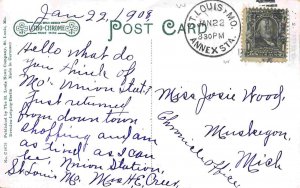 Jan 22, 1908
LITHO-CHROME
POST CARD
ST LOUIS, MO.
JAN 22
3 30 PM
ANNEX STA.
Hello what do
you think of
Mo. Union Sta?
Just returned
from down town
shopping and am
as tired as I can
be. Union Station,
St Louis Mo. Mrs H.E.
Miss Josie Wood,
Muskegon,
Mich
Chronicle Office